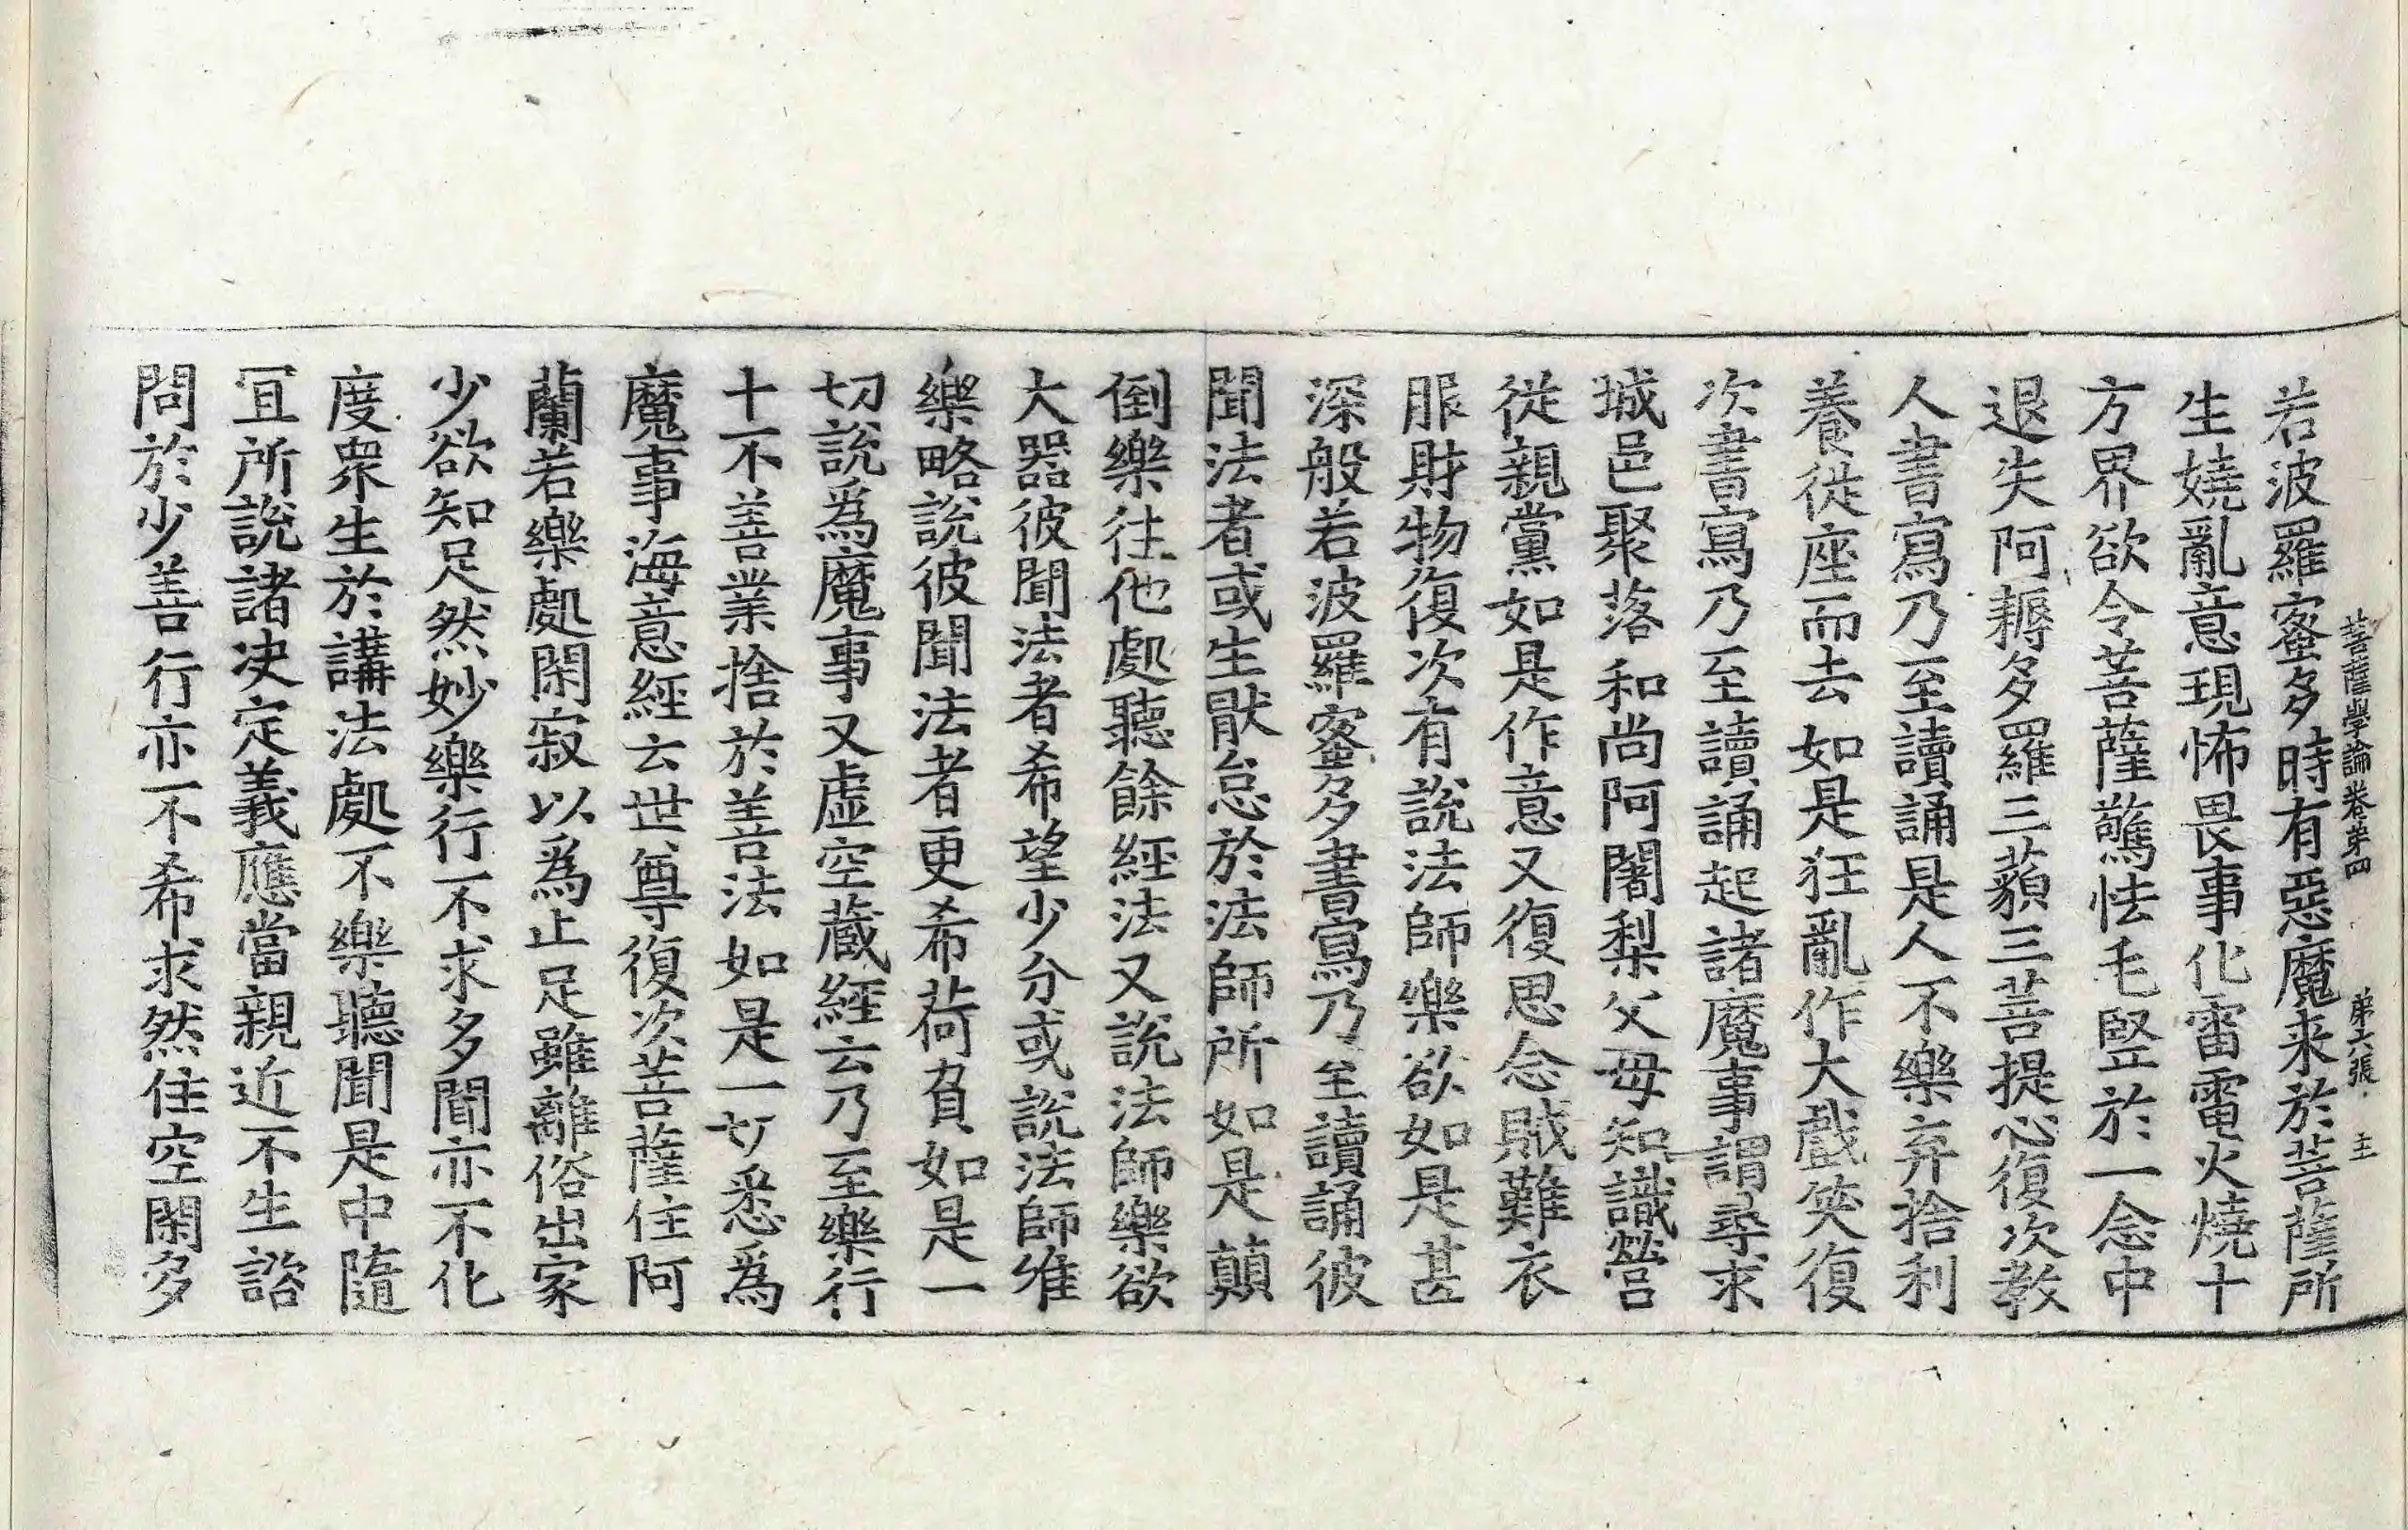 菩薩學論卷第四 第六張 主
若波羅蜜多時有惡魔来於菩薩所
生嬈亂意現怖畏事化雷電火燒十
方界欲令菩薩驚怯毛竪於一念中
退失阿耨多羅三藐三菩提心復次教
人書寫乃至讀誦是人不樂弃捨利
養從座而去如是狂亂作大戲笑復
次書寫乃至讀誦起諸魔事謂尋求
城邑聚落和尚阿闍梨父母知識營
從親黨如是作意又復思念賊難衣
服財物復次有說法師樂欲如是甚
深般若波羅蜜多書寫乃至讀誦彼
聞法者或生猒怠於法師所如是顛
倒樂往他處聽餘經法又說法師樂欲
大器彼聞法者希望少分或說法師唯
樂略說彼聞法者更希荷負如是一
切說爲魔事又虛空藏經云乃至樂行
十不善業捨於善法如是一切悉爲
魔事海意經云世尊復次菩薩住阿
蘭若樂處閑寂以爲止足雖離俗出家
少欲知足然妙樂行不求多聞亦不化
度衆生於講法處不樂聽聞是中隨
冝所說諸决定義應當親近不生諮
問於少善行亦不希求然住空閑多